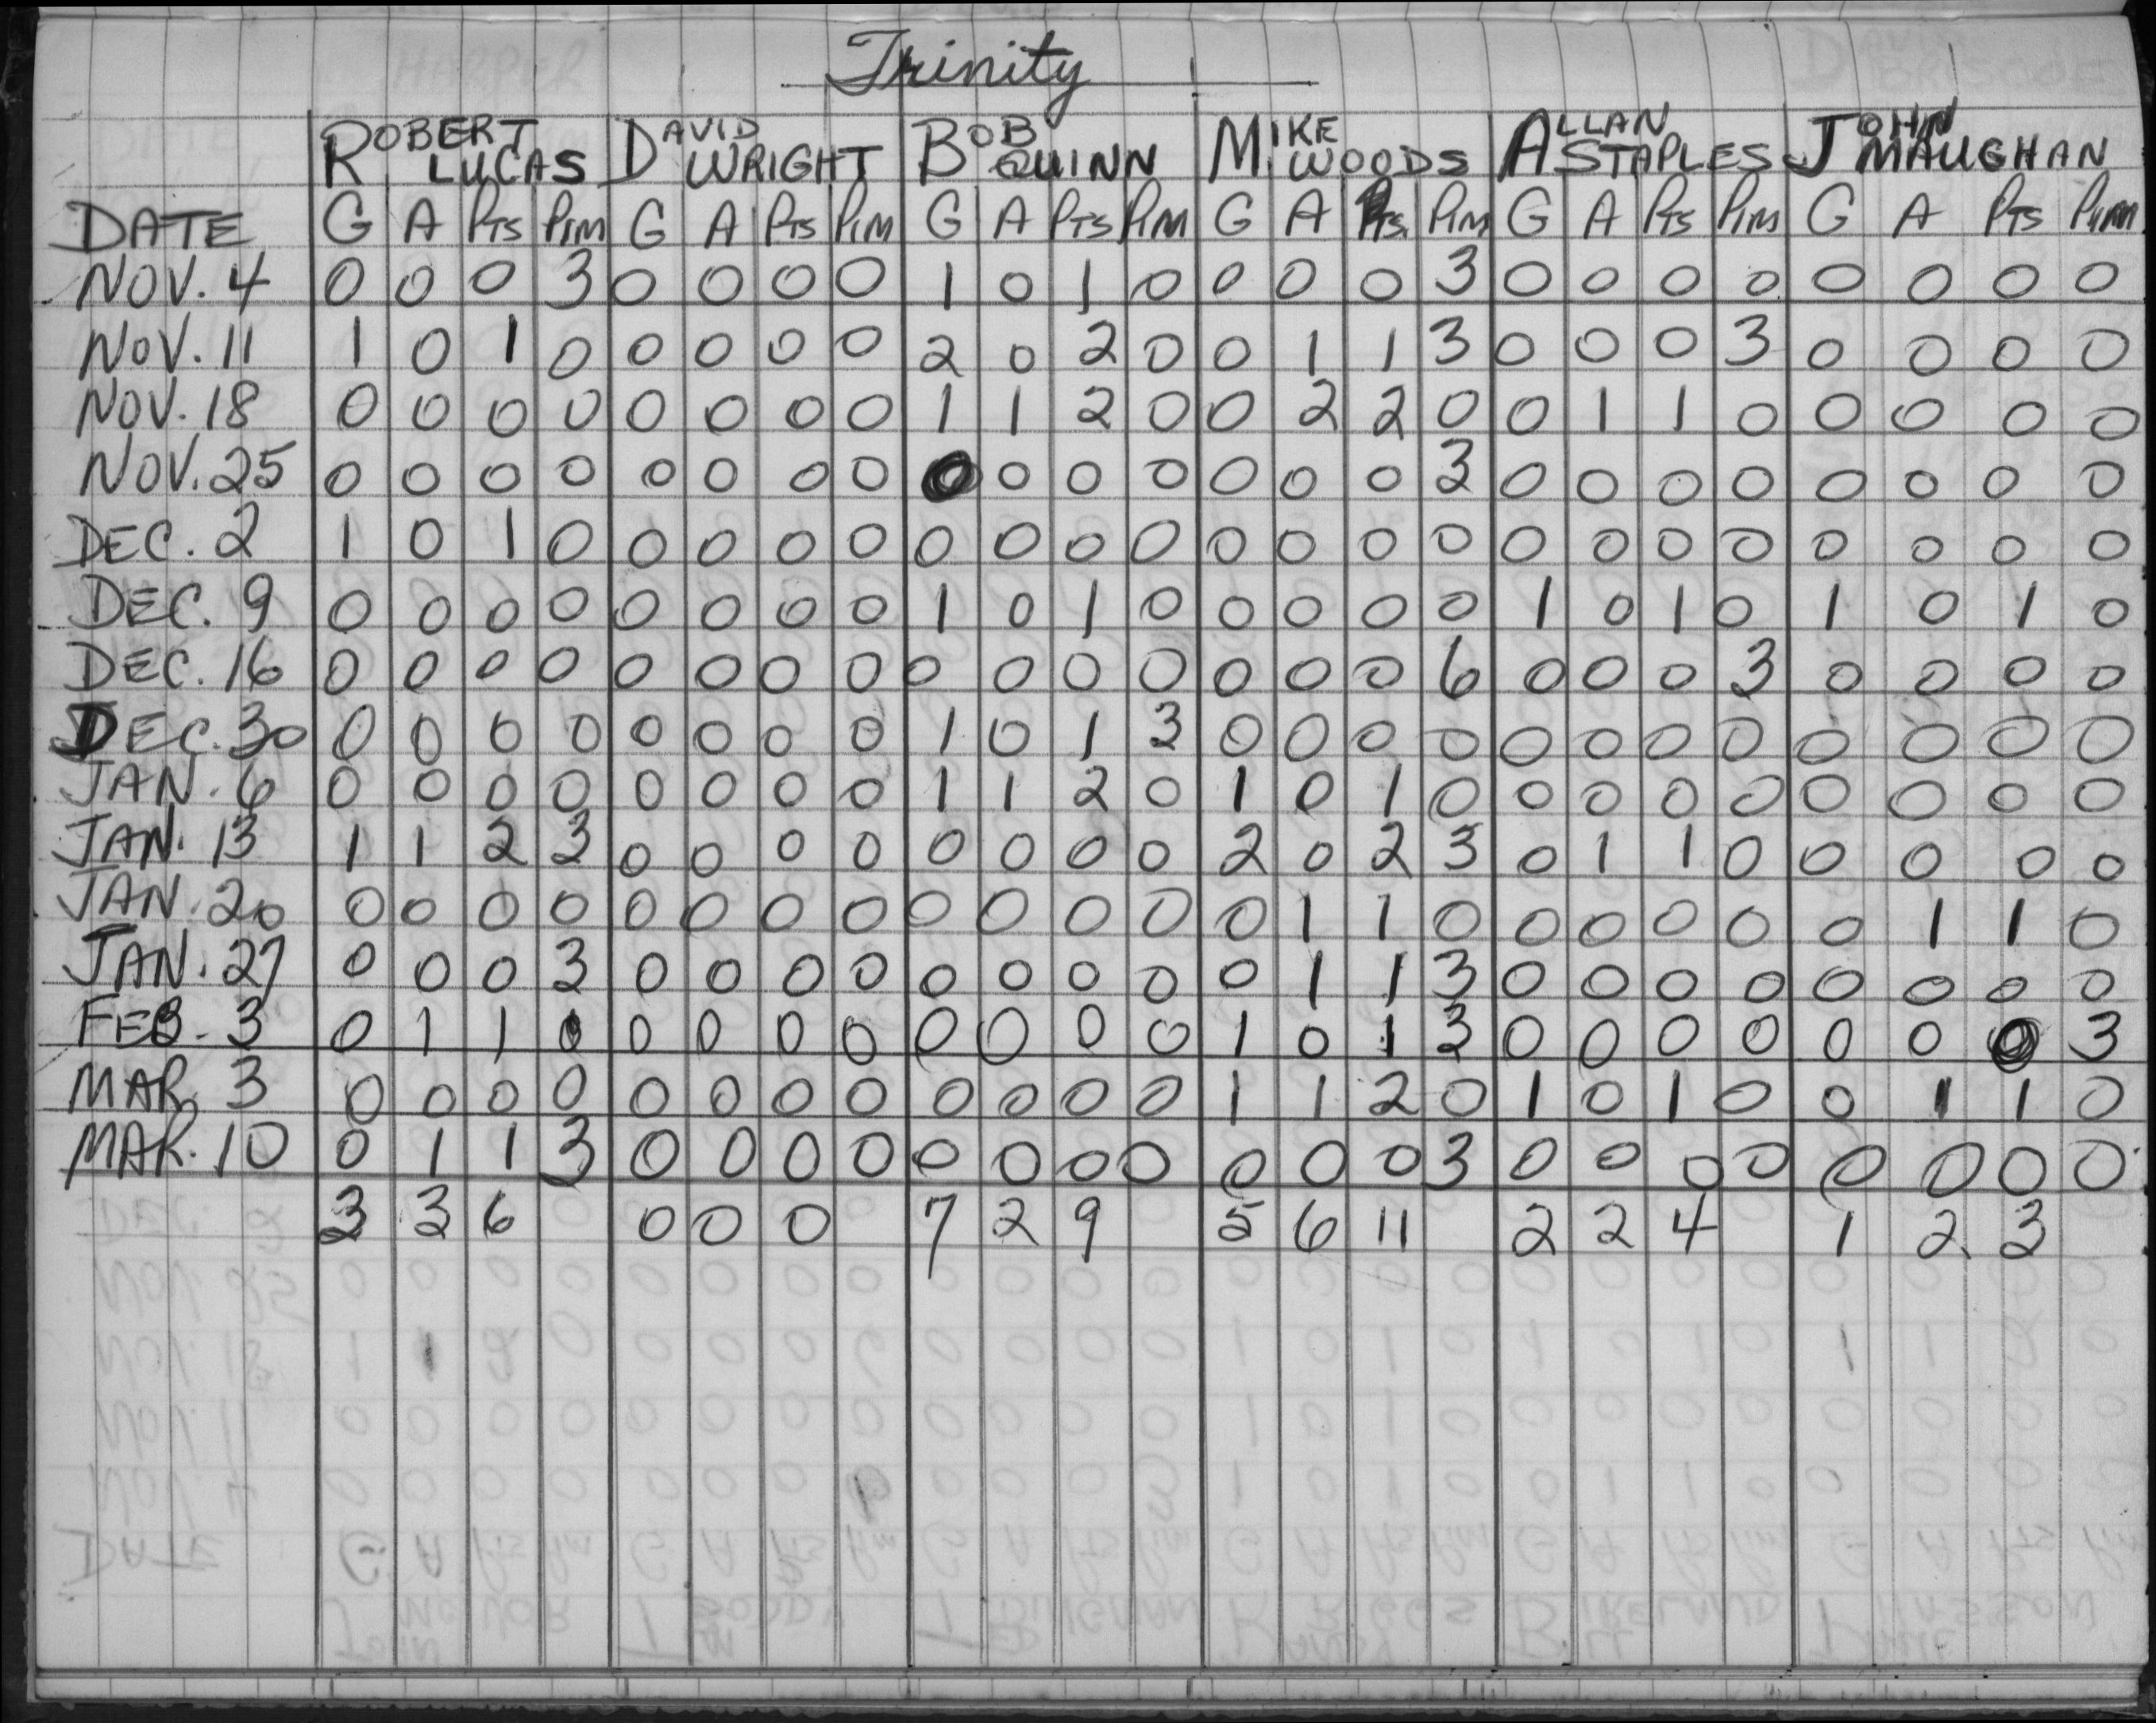 Trinity
ROBERT LUCAS DAVID WRIGHT BOB QUINN MIKE WOODS ALLAN STAPLES JOHN MAUGHAN
DATE G A PTS PIM G A PTS PIM G A PTS PIM G A PTS. PIM G A PTS PIM G A PTS PIM
NOV. 4 0 0 0 3 0 0 0 0 1 0 1 0 0 0 0 3 0 0 0 0 0 0 0 0
NOV. 11 1 0 1 0 0 0 0 0 2 0 2 0 0 1 1 3 0 0 0 3 0 0 0 0
NOV. 18 0 0 0 0 0 0 0 0 1 1 2 0 0 2 2 0 0 1 1 0 0 0 0 0
NOV. 25 0 0 0 0 0 0 0 0 0 0 0 0 0 0 0 3 0 0 0 0 0 0 0 0
DEC. 2 1 0 1 0 0 0 0 0 0 0 0 0 0 0 0 0 0 0 0 0 0 0 0 0
DEC. 9 0 0 0 0 0 0 0 0 1 0 1 0 0 0 0 0 1 0 1 0 1 0 1 0
DEC. 16 0 0 0 0 0 0 0 0 0 0 0 0 0 0 0 6 0 0 0 3 0 0 0 0
DEC. 30 0 0 0 0 0 0 0 0 1 0 1 3 0 0 0 0 0 0 0 0 0 0 0 0
JAN. 6 0 0 0 0 0 0 0 0 1 1 2 0 1 0 1 0 0 0 0 0 0 0 0 0
JAN. 13 1 1 2 3 0 0 0 0 0 0 0 0 2 0 2 3 0 1 1 0 0 0 0 0
JAN. 20 0 0 0 0 0 0 0 0 0 0 0 0 0 1 1 0 0 0 0 0 0 1 1 0
JAN. 27 0 0 0 3 0 0 0 0 0 0 0 0 0 1 1 3 0 0 0 0 0 0 0 0
FEB. 3 0 1 1 0 0 0 0 0 0 0 0 0 1 0 1 3 0 0 0 0 0 0 0 3
MAR. 3 0 0 0 0 0 0 0 0 0 0 0 0 1 1 2 0 1 0 1 0 0 1 1 0
MAR. 10 0 1 1 3 0 0 0 0 0 0 0 0 0 0 0 3 0 0 0 0 0 0 0 0
3 3 6 0 0 0 7 2 9 5 6 11 2 2 4 1 2 3